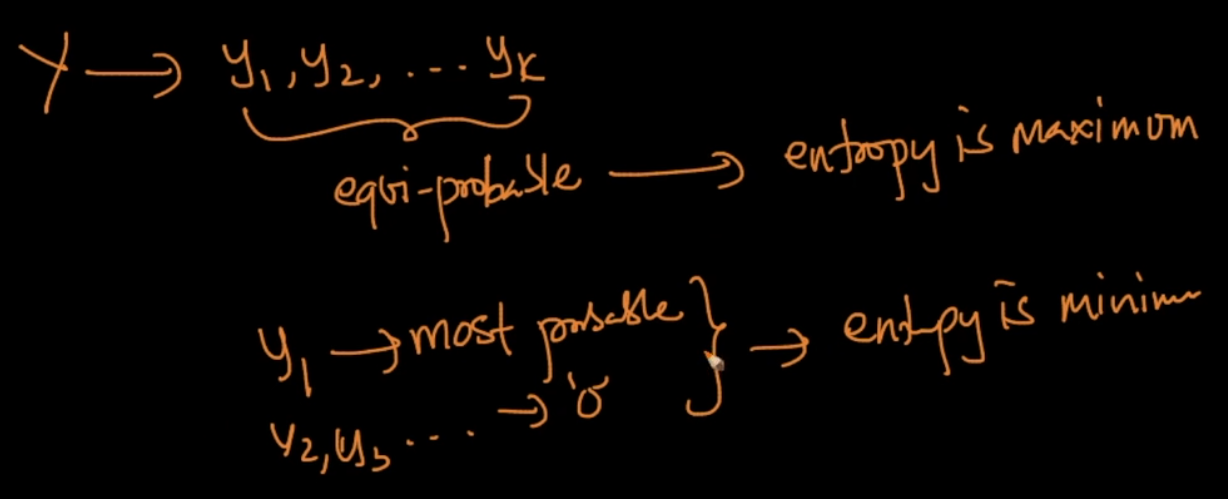 Y → y₁, y₂, .... yₖ
equi-probable → entropy is maximum
y₁ → most probable } → entropy is minimum
y₂, y₃ .... → '0'